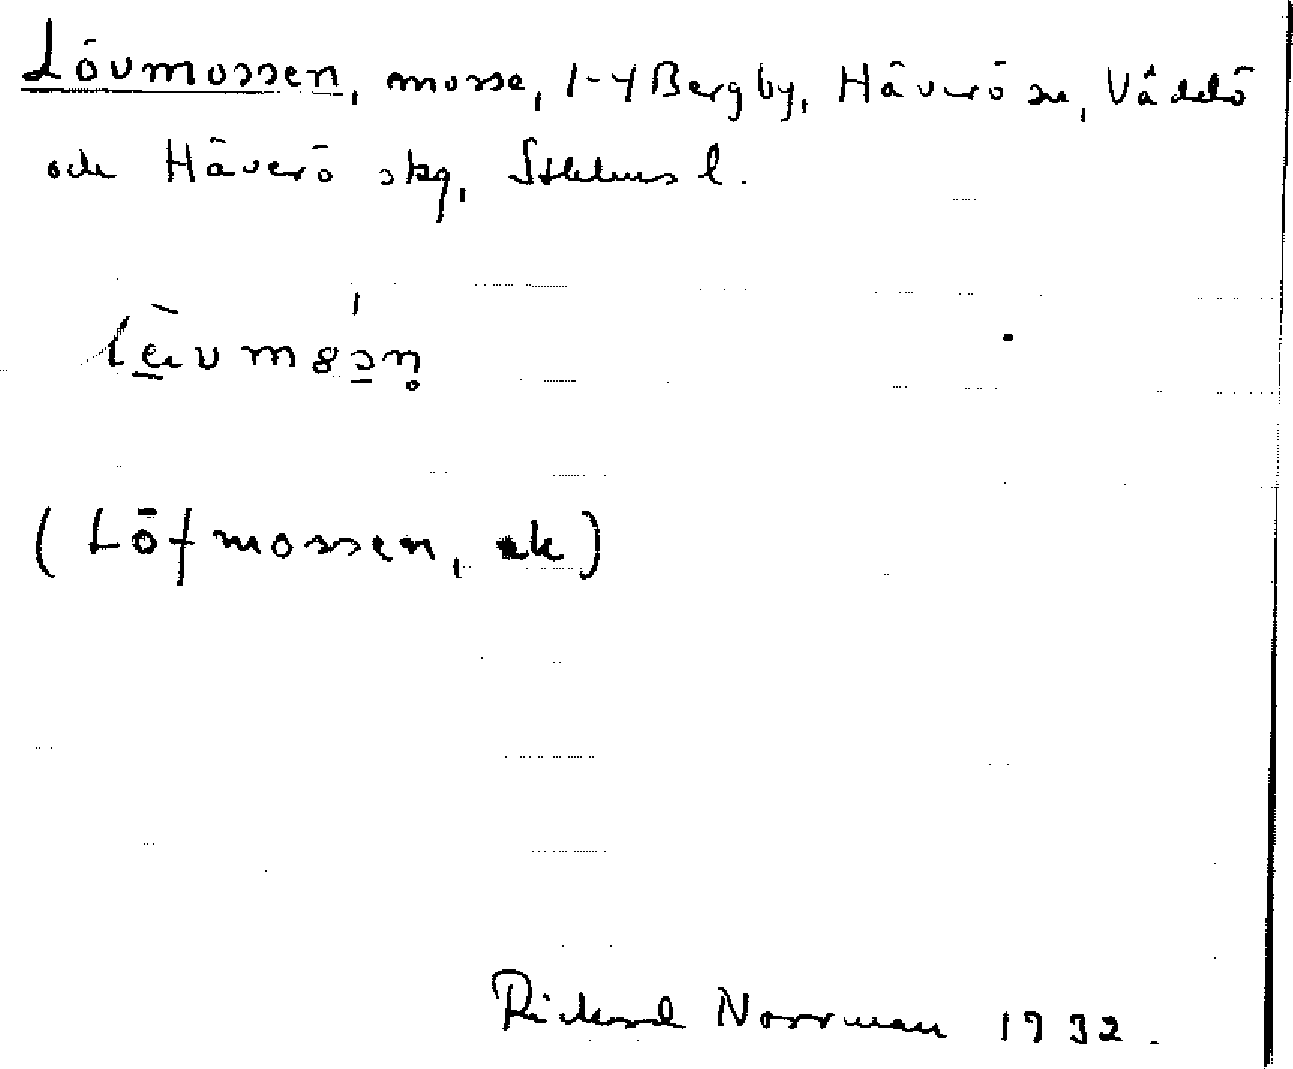 Lövmossen, mosse, 1-4 Bergby, Häverö sn, Väddö
och Häverö skg, Sthlms l.
(Löfmossen, ek)
Rickard Norrman 1932.